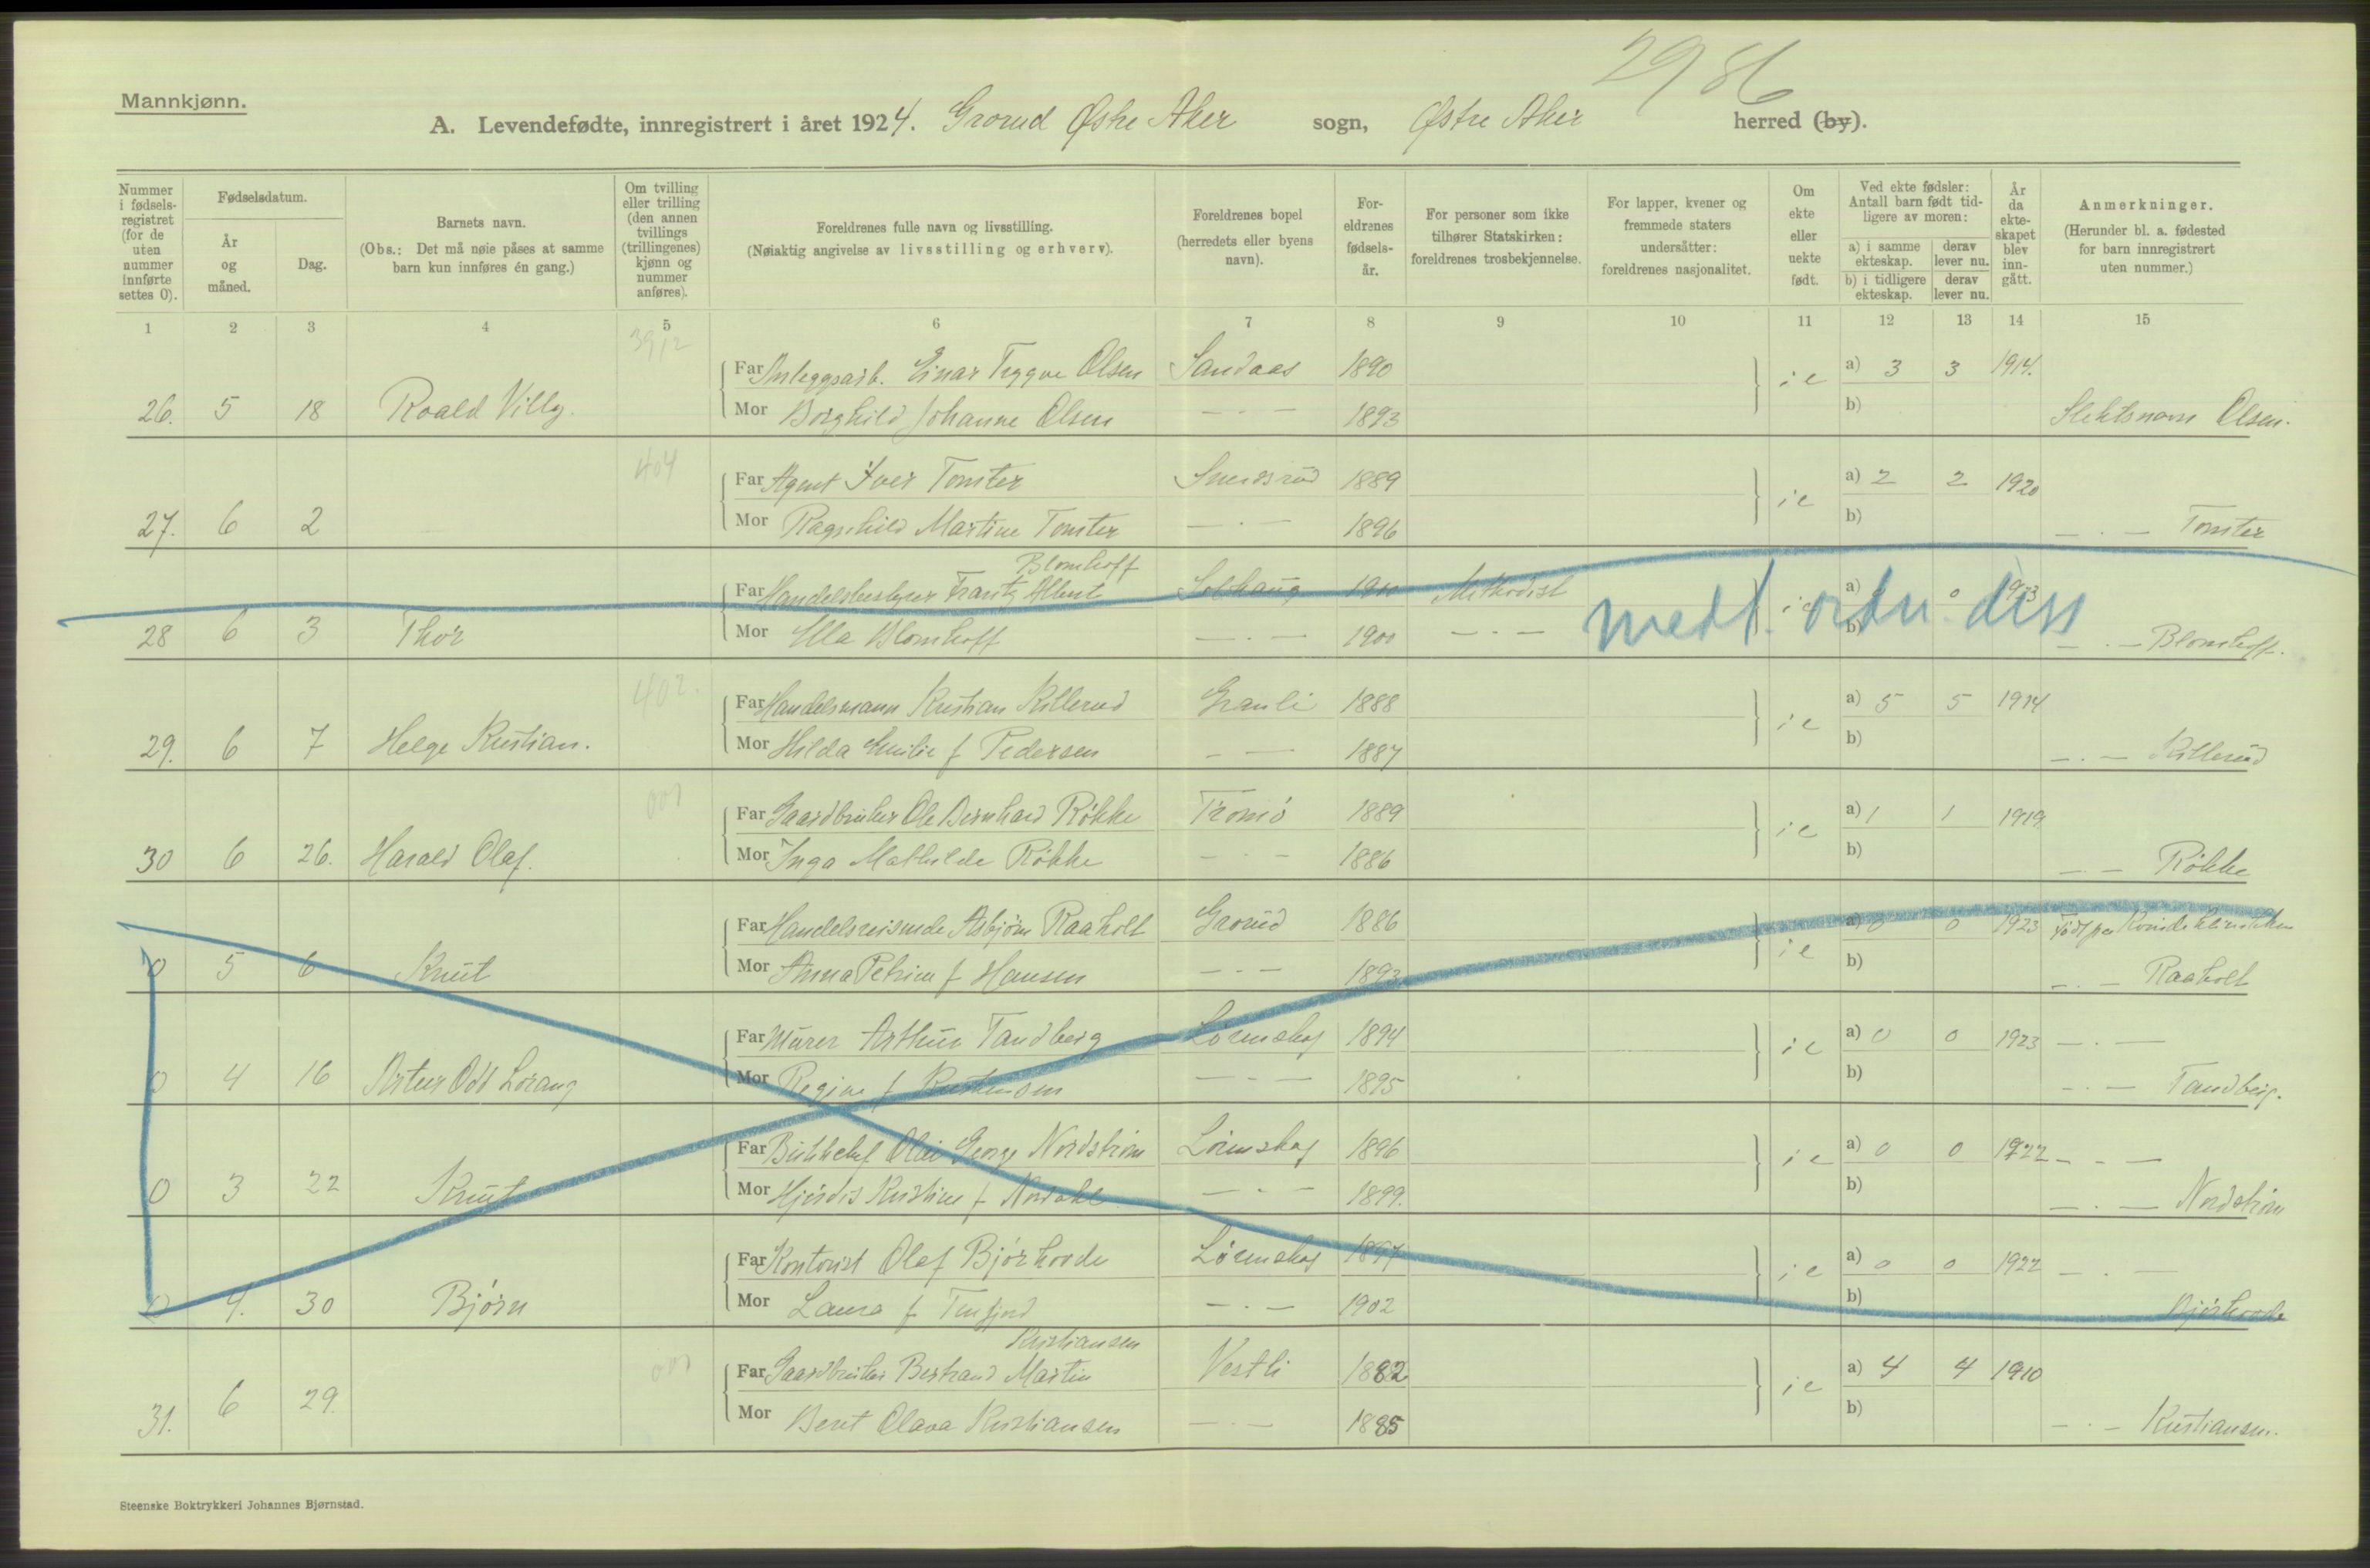 2986
Mannkjønn.
A. Levendefødte, innregistrert i året 1924. Grorud Østre Aker sogn, Østre Aker herred (by).
Nummer i fødsels-registret (for de uten nummer innførte settes 0).
Fødselsdatum.
År og måned.
Dag.
Barnets navn.
(Obs.: Det må nøie påses at samme barn kun innføres én gang.)
Om tvilling eller trilling (den annen tvillings (trillingenes) kjønn og nummer anføres).
Foreldrenes fulle navn og livsstilling.
(Nøiaktig angivelse av livsstilling og erhverv).
Foreldrenes bopel (herredets eller byens navn).
For-eldrenes fødsels-år.
For personer som ikke tilhører Statskirken: foreldrenes trosbekjennelse.
For lapper, kvener og fremmede staters undersåtter: foreldrenes nasjonalitet.
Om ekte eller uekte født.
Ved ekte fødsler: Antall barn født tid-ligere av moren:
a) i samme ekteskap. derav lever nu.
b) i tidligere ekteskap. derav lever nu.
År da ekte-skapet blev inn-gått.
Anmerkninger.
(Herunder bl. a. fødested for barn innregistrert uten nummer.)
1 2 3 4 5 6 7 8 9 10 11 12 13 14 15
3912
Far Anleggsarb. Einar Trygve Olsen Sandaas 1890 ie a) 3 3 1914.
26. 5 18 Roald Villy. Mor Borghild Johanne Olsen — . — 1893 b) Slektsnavn Olsen.
404
Far Agent Iver Tomter Smedsrud 1889 ie a) 2 2 1920
27. 6 2 Mor Ragnhild Martine Tomter — . — 1896 b) — . — Tomter
Blomhoff
Far Handelsbestyrer Frantz Albert Solhaug 1900 Methodist ie a) 0 1923
28 6 3 Thor Mor Ella Blomhoff — . — 1901 — . — b) — . — Blomhoff.
medt. ordn. diss
402.
Far Handelsmann Kristian Killerud Granli 1888 ie a) 5 5 1914
29. 6 7 Helge Kristian. Mor Hilda Emilie f Pedersen — — 1887 b) — . — Killerud
001
Far Gaardbruker Ole Bernhard Røkke Tromø 1889 ie a) 1 1 1919
30 6 26. Harald Olaf. Mor Inga Mathilde Røkke — . — 1886 b) — — Røkke
Far Handelsreisende Asbjørn Raaholt Grorud 1886 ie a) 0 0 1923 Født paa Kvindeklinikken
0 5 6 Knut Mor Anna Petrine f Hansen — . — 1893 b) — . — Raaholt
Far Murer Arthur Tandberg Lørenskog 1894 ie a) 0 0 1923 — . —
0 4 16 Artur Odd Lorang Mor Regine f Kristensen — . — 1895 b) — . — Tandberg.
Far Olav George Nordstrøm Lørenskog 1896 ie a) 0 0 1922 — . —
0 3 22 Knut Mor Hjørdis Kristine f Nordahl — . — 1899. b) — . — Nordstrøm
Far Kontorist Olaf Bjørhovde Lørenskog 1897 ie a) 0 0 1922 — . —
0 4. 30 Bjørn Mor Laura f — . — 1902 b) Bjørhovde
Kristiansen
001
Far Gaardbruker Bertrand Martin Vestli 1882 ie a) 4 4 1910
31. 6 29. Mor Beret Olava Kristiansen — . — 1885 b) — . — Kristiansen.
Steenske Boktrykkeri Johannes Bjørnstad.